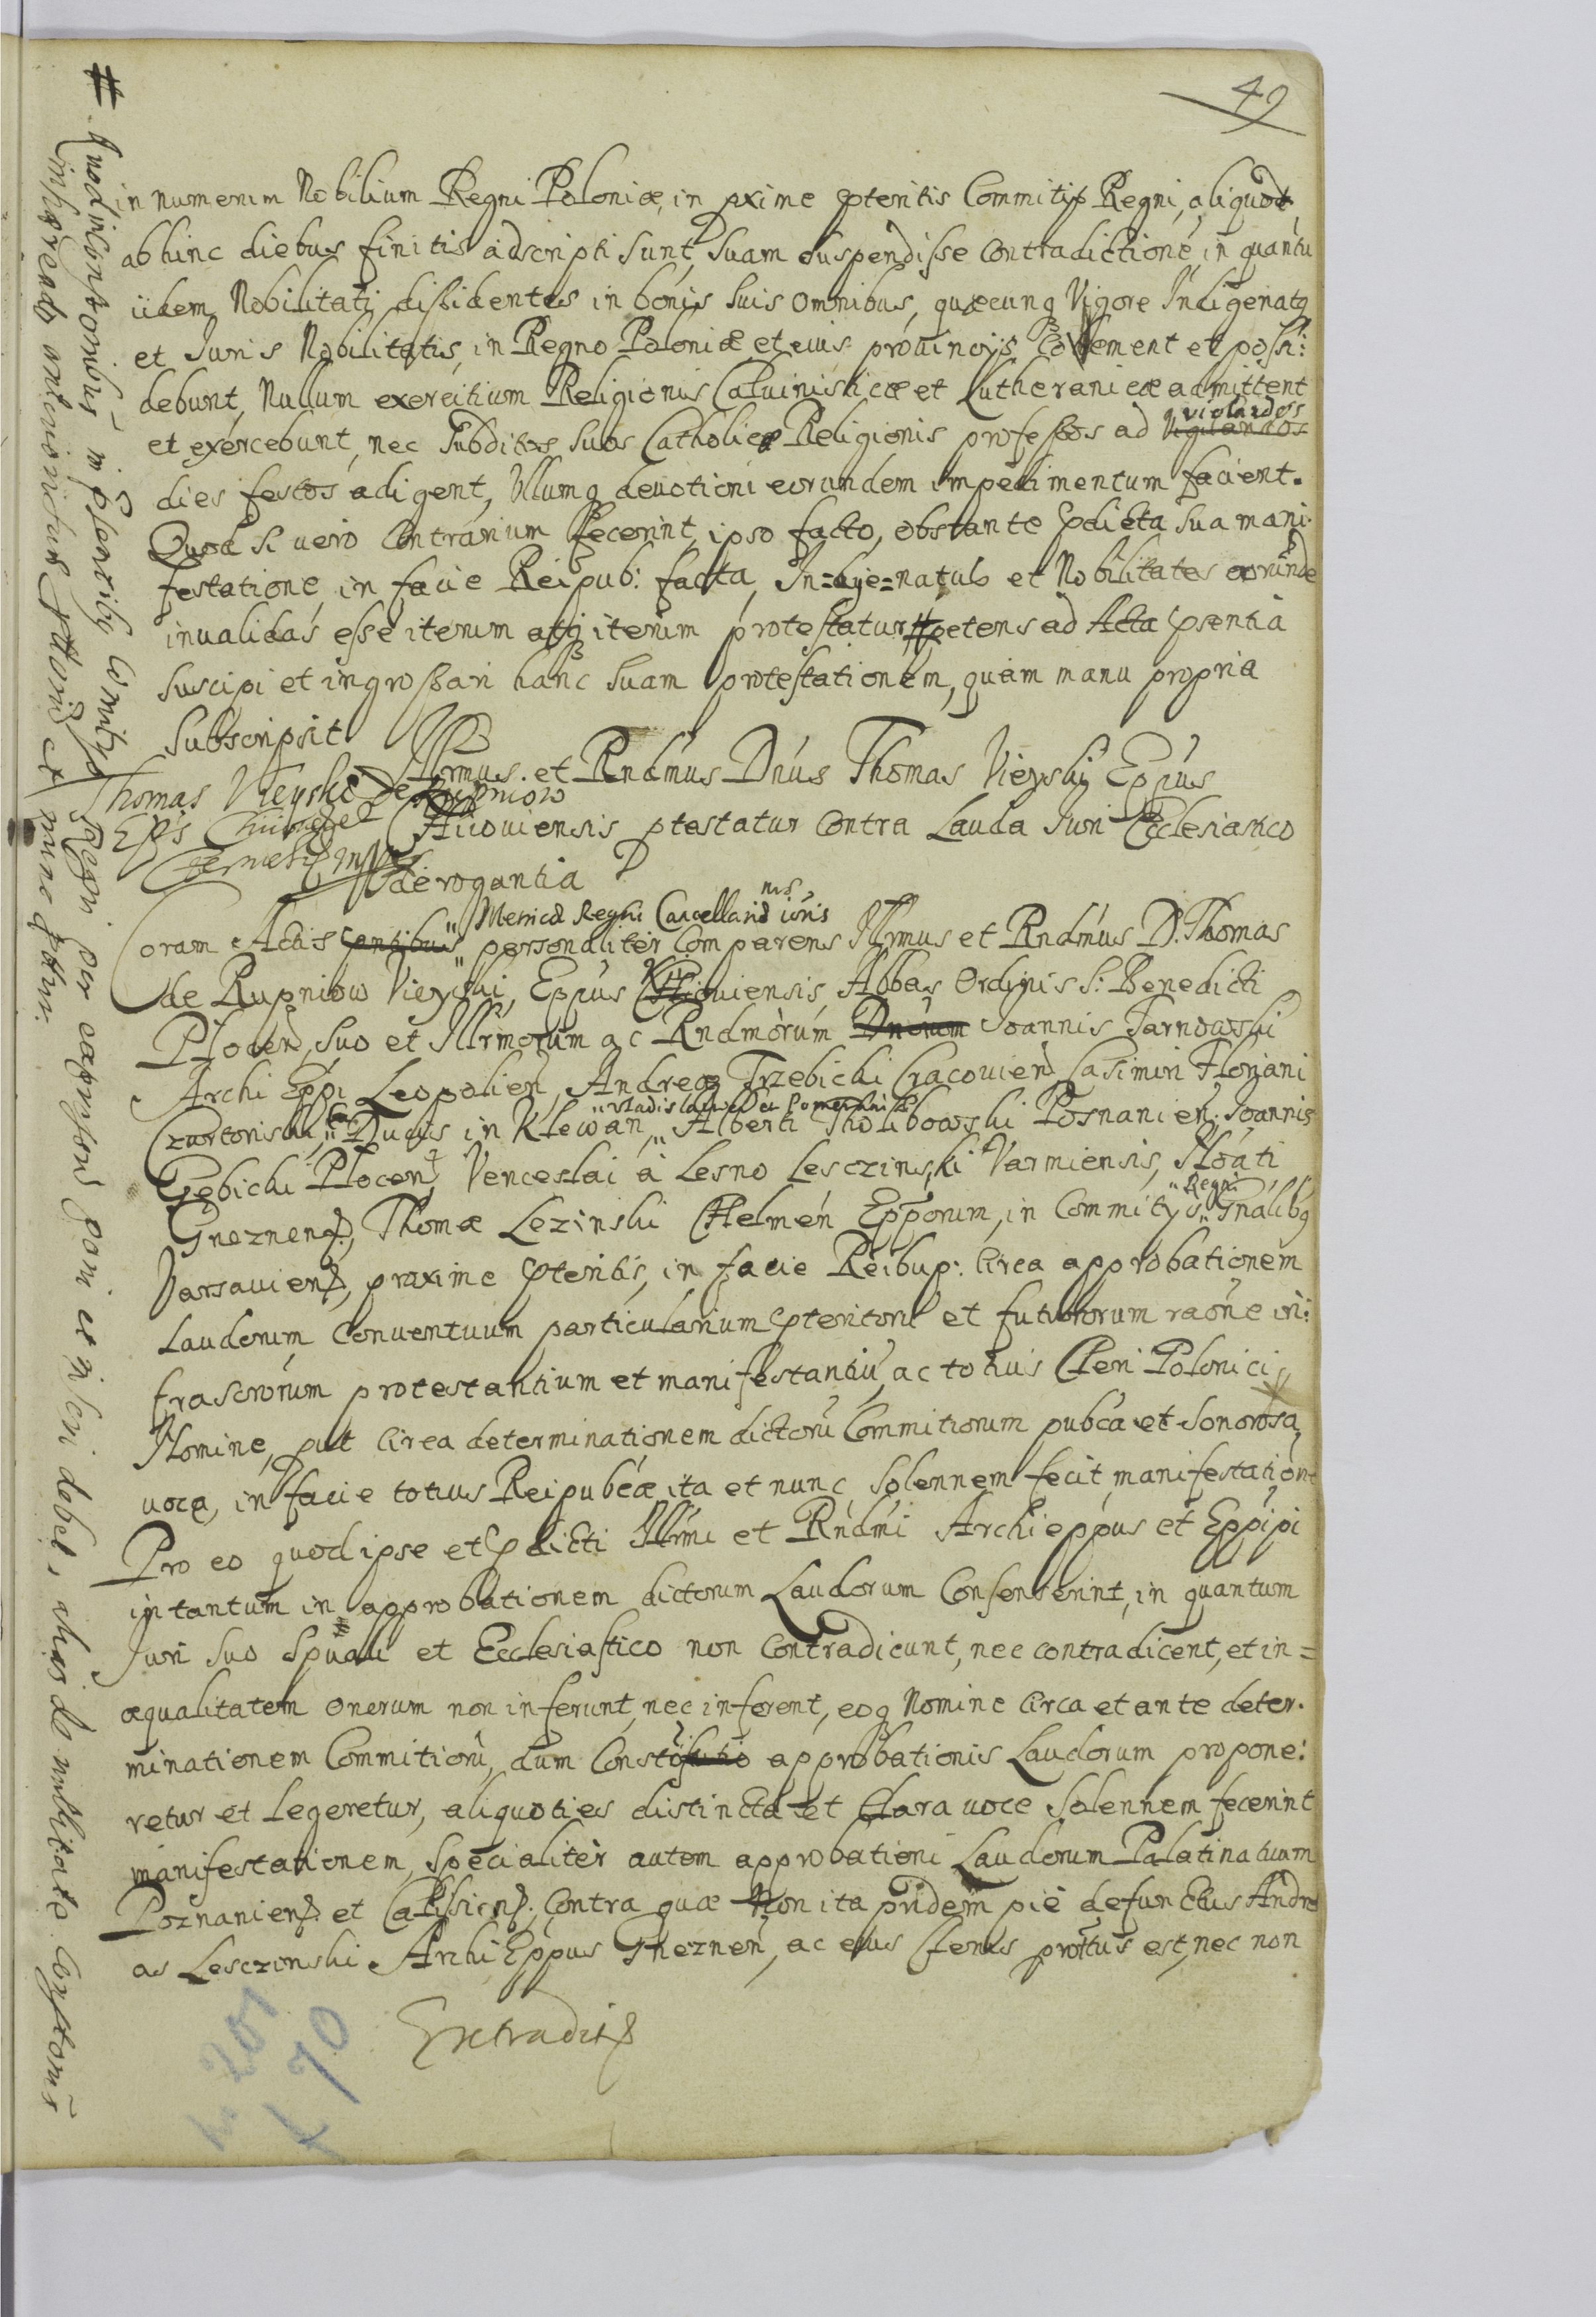 49
in numerum Nobilium Regni Poloniæ, in pxime pteritis Commitijs Regni, aliquot
abhinc diebus finitis adscripti sunt, Suam suspendisse Contradictionē, in quantū
iidem Nobilitati dissidentes in bonis suis omnibus, quæcunq Vigore Indigenatq
et Juris Nobilitatis, in Regno Poloniæ et eius prouincijs et possi:
debunt, Nullum exercitium Religionis Caluinisticæ et Lutheranicæ admittent
et exercebunt, nec Subditos suos Catholicæ Religionis professos ad violandos
dies festos adigent, Ullumq deuotioni eorundem impedimentum facient.
Quod si uero Contrarium fecerint, ipso facto, obstante pdicta sua mani-
festatione, in facie Reipub: facta, In=dige=natus et Nobilitates eorundē
inualidas esse iterum atq iterum protestatur # petens ad Acta psentia
suscipi et ingrossari hanc suam protestationem, quam manu propria
Subscripsit
Thomas Vieyski De Rupniow
Epūs
Illrmus et Rndmus Dnus Thomas Vieyski Eppus
Kiiouiensis ptestatur Contra Lauda Iuri Ecclesiastico
derogantia
Coram Actis Metrices Regni Cancellariæ personaliter Comparens Illrmus et Rndmus D. Thomas
de Rupniow Vieyski, Eppus Kiiouiensis, Abbas Ordinis S: Benedicti
Plocen, Suo et Illrmorum ac Rndmorum Dnorum Joannis Tarnowski
Archi Eppi Leopolien, Andreæ Trzebicki Cracouien, Casimiri Floriani
Czartoriski, Ducis in Klewan, Alberti Tholibowski Posnanien, Joannis
Gebicki Plocen, Venceslai à Lesno Lesczinski Varmiensis, Noāti
Gneznens, Thomæ Lezinski Chelmen Epporum, in Commitijs Regni Gnālibq
Varsauiens, proxime pteritis, in facie Reibup: Circa approbationem
Laudorum Conuentuum particularium pteritorū et futurorum raōne in:
frascrorum protestantium et manifestantiū, ac totius Cleri Polonici
Nomine, put Circa determinationem dictorū Commitiorum pubca et Sonorosa
uoce, in facie totius Reipubcæ ita et nunc Solennem fecit manifestationē
Pro eo quod ipse et pdicti Illrmi et Rndmi Archieppus et Eppipi
in tantum in approbationem dictorum Laudorum Consenserint, in quantum
Juri suo Spuali et Ecclesiastico non Contradicunt, nec contradicent, et in=
æqualitatem onerum non inferunt, nec inferent, eoq Nomine Circa et ante deter-
minationem Commitiorū, dum approbationis Laudorum propone:
retur et legeretur, aliquoties distincta et Clara uoce Solennem fecerint
manifestationem, Specialiter autem approbationi Laudorum Palatinatuum
Poznaniens et Calissiens, Contra quæ Non ita pridem piè defunctus Andre
as Lesczinski Archi Eppus Gneznen, ac eius Clerus prottus est, nec non
Extradits
# Quod in Constonibus in psentibq Comitijs Regni per expressum poni et inseri debet, alias de nullitate Constonis
inhærendo
201
f 70